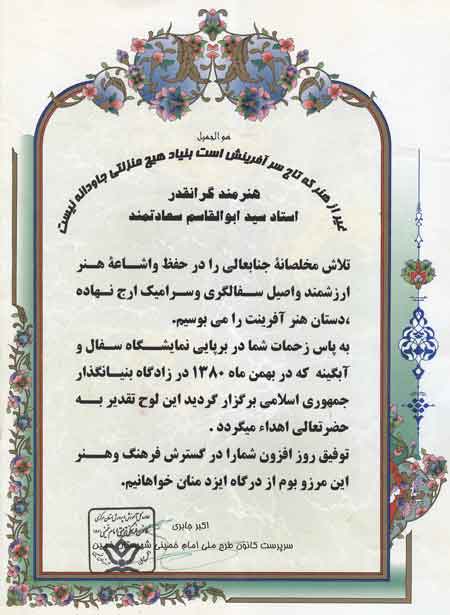 هو الجمیل
غیر از هنر که تاج سر آفرینش است بنیاد هیچ منزلتی جاودانه نیست
هنرمند گرانقدر
استاد سید ابوالقاسم سعادتمند
تلاش مخلصانهٔ جنابعالی را در حفظ واشاعهٔ هنر
ارزشمند واصیل سفالگری وسرامیک ارج نهاده
،دستان هنر آفرینت را می بوسیم.
به پاس زحمات شما در برپایی نمایشگاه سفال و
آبگینه که در بهمن ماه ۱۳۸۰ در زادگاه بنیانگذار
جمهوری اسلامی برگزار گردید این لوح تقدیر به
حضرتعالی اهداء میگردد .
توفیق روز افزون شمارا در گسترش فرهنگ وهنر
این مرزو بوم از درگاه ایزد منان خواهانیم.
اکبر جابری
سرپرست کانون طرح ملی امام خمینی شهرستان خمین